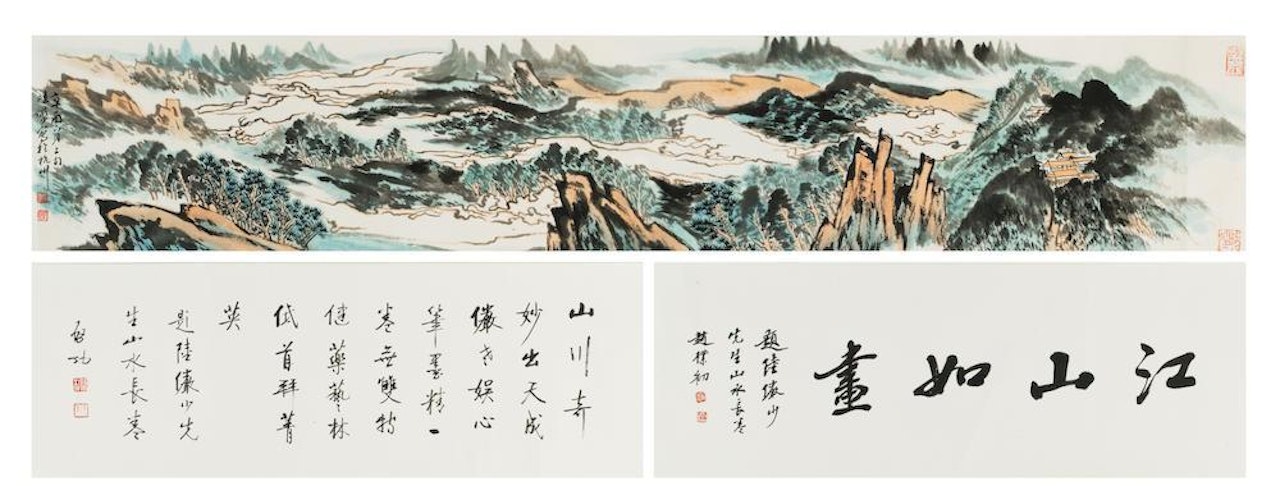 於杭州
江山如畫
題陸儼少
先生山水長卷
趙樸初
山川奇
妙出天成
儼老娛心
筆墨精一
卷無雙特
健藥藝林
低首拜菁
英
題陸儼少先
生山水長卷
啟功